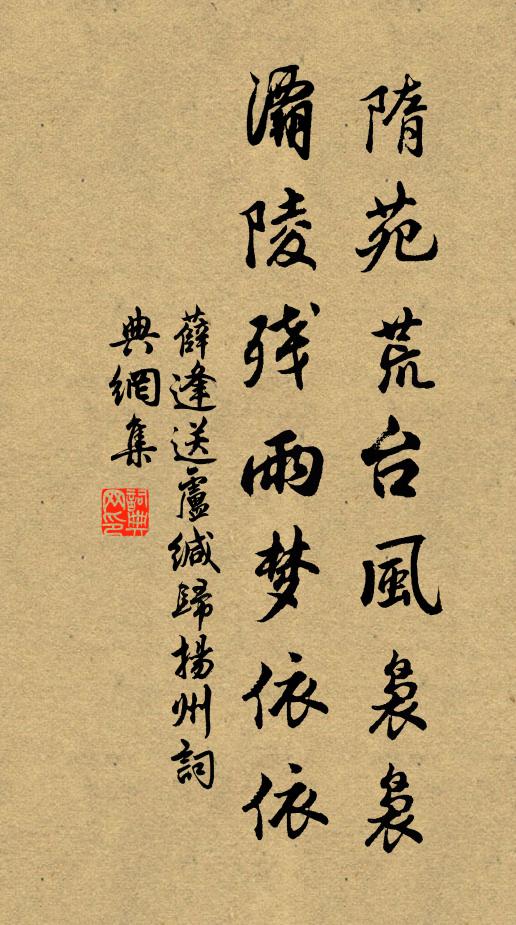 隋苑荒台風裊裊
灞陵残雨梦依依
薛逢送盧缄歸揚州詞
典網集
詞典網印